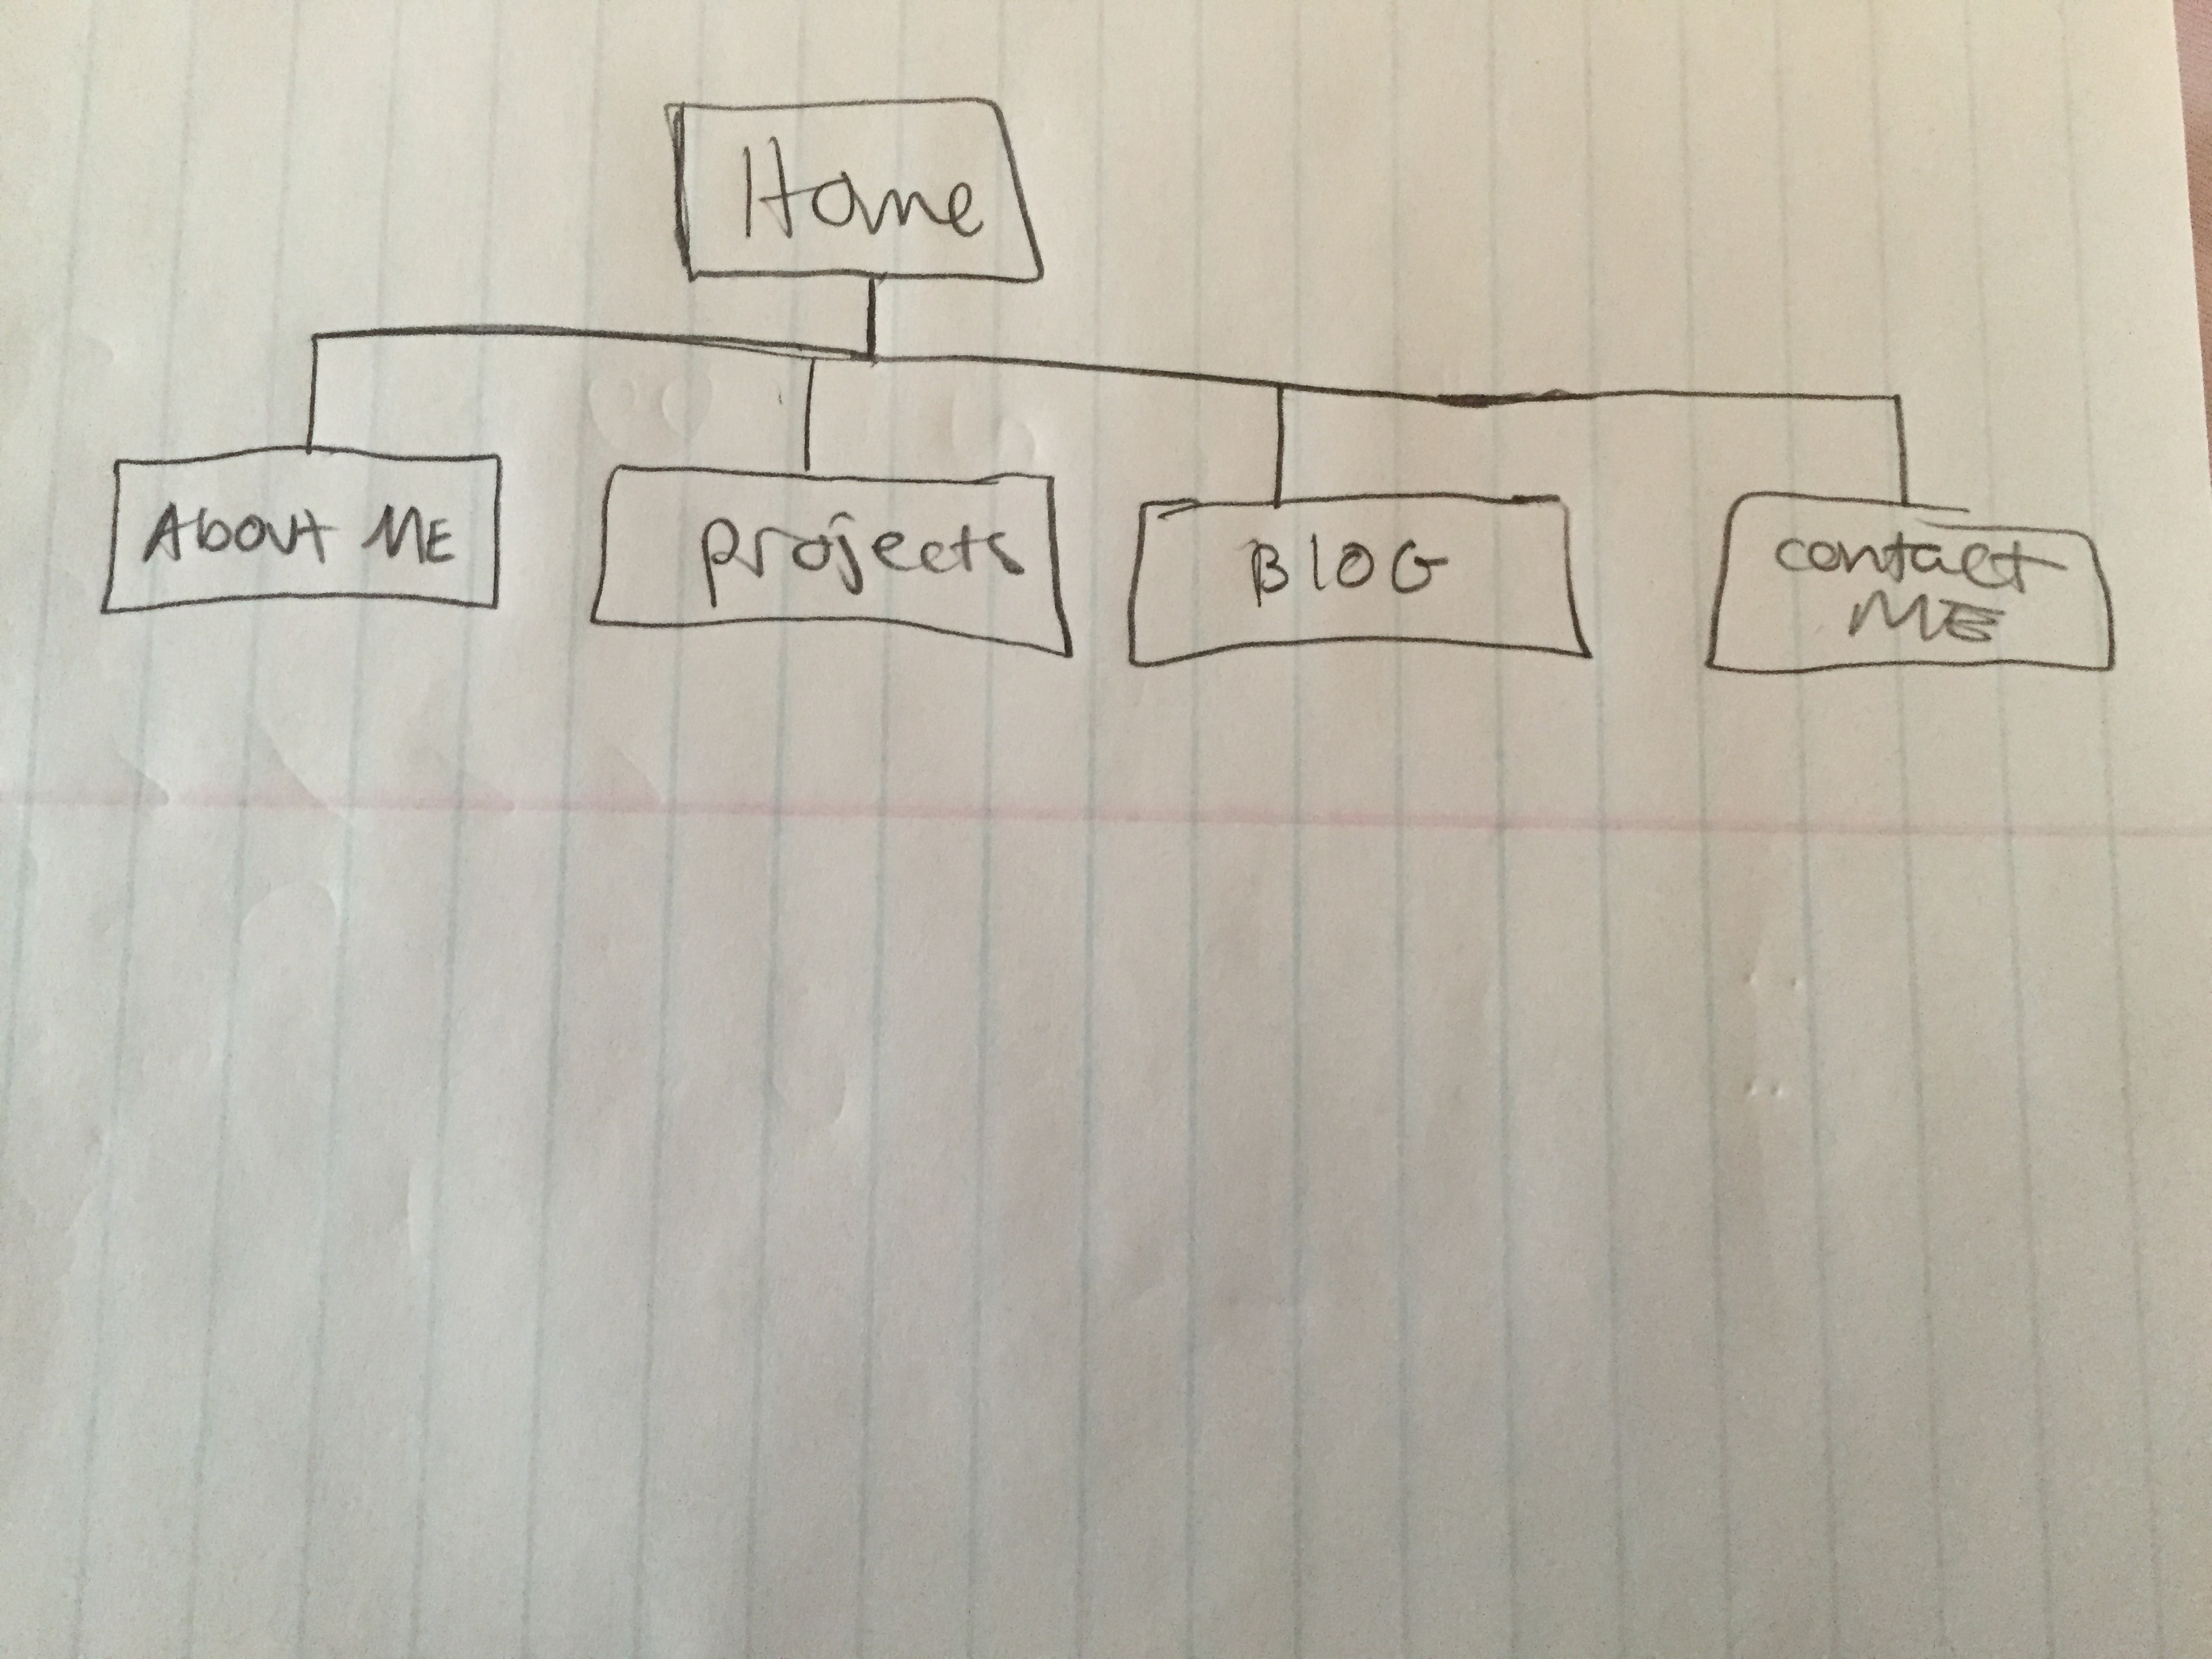 Home
About ME
projects
BlOG
contact
ME